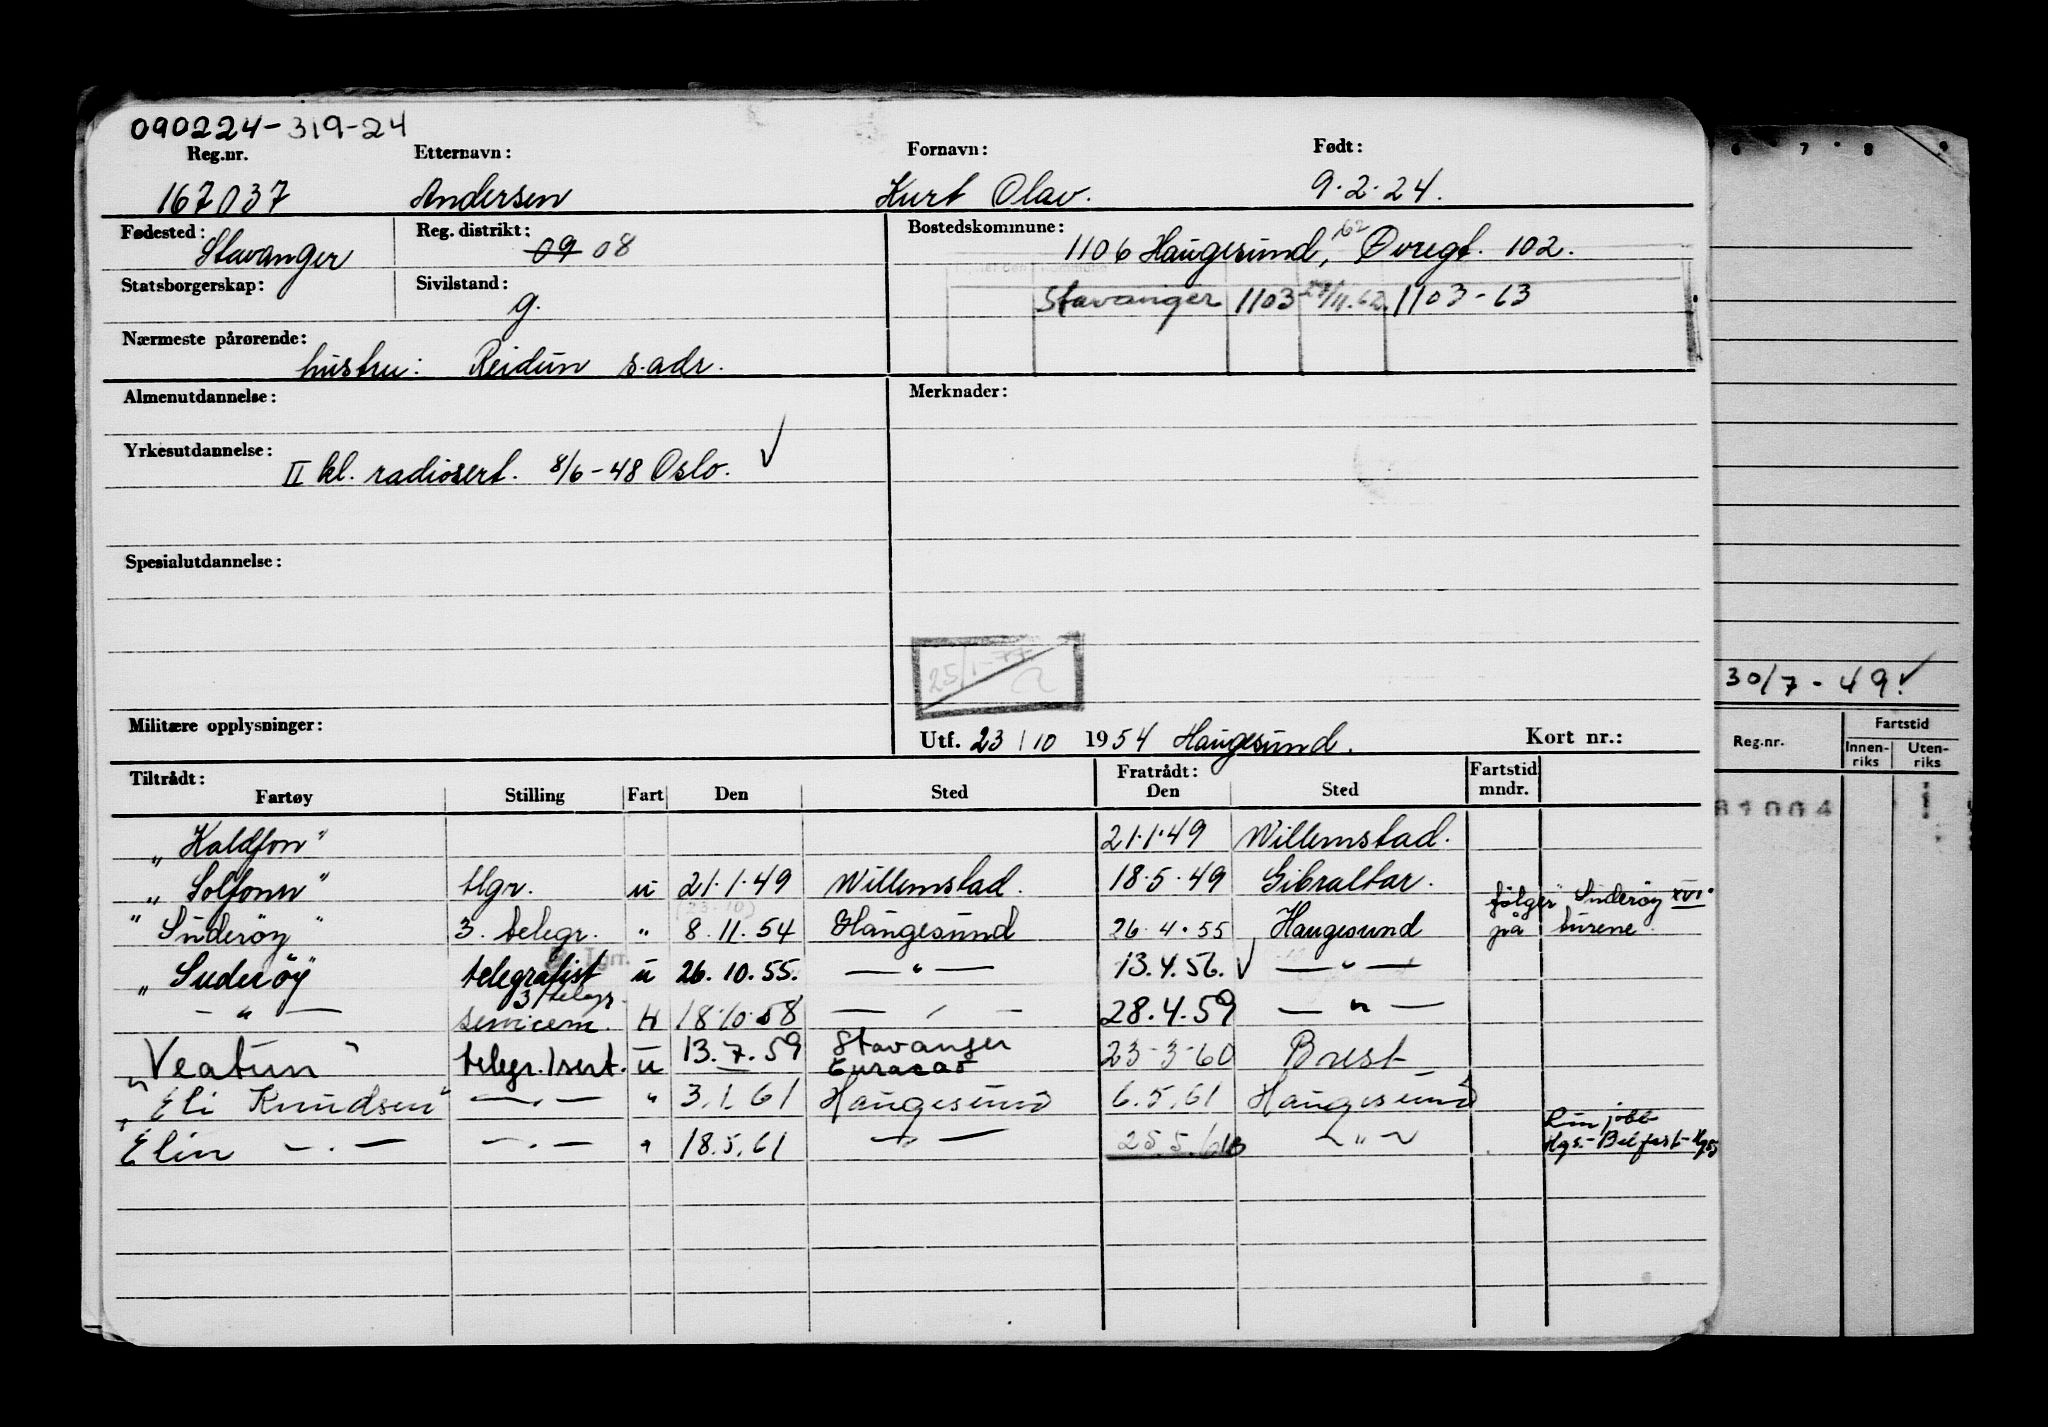 090224-319-24
Reg.nr. Etternavn: Fornavn: Født:
167037 Andersen Kurt Olav. 9.2.24.
Fødested: Stavanger Reg. distrikt: 09 08 Bostedskommune: 1106 Haugesund, 62 Øvregt. 102.
Statsborgerskap: Sivilstand: g. Stavanger 1103 11.62. 1103-63
Nærmeste pårørende: hustru: Reidun s.adr.
Almenutdannelse: Merknader:
Yrkesutdannelse: II kl. radiosert. 8/6-48 Oslo. ✓
Spesialutdannelse:
25/1-77
Militære opplysninger: Utf. 23/10 1954 Haugesund. Kort nr.:
Tiltrådt: Fratrådt: Fartstid
Fartøy Stilling Fart Den Sted Den Sted mndr.
"Kaldfon" 21.1.49 Willemstad.
"Solfonn" tlgr. u 21.1.49 Willemstad. 18.5.49 Gibraltar.
(23.10) følger "Suderøy XVI"
"Suderøy" 3. telegr. " 8.11.54 Haugesund 26.4.55 Haugesund på turene.
"Suderøy" telegrafist u 26.10.55. — " — 13.4.56. ✓ — " —
3 telegr.
— " — servicem. H 18.10.58 — " — 28.4.59 — " —
"Veatun" telegr./sert. u 13.7.59 Stavanger 23-3-60 Brest
Curacao
"Eli Knudsen" — " — " 3.1.61 Haugesund 6.5.61 Haugesund
jobb
Elin — " — — " — " 18.5.61 — " — 25.5.61 — " — Hgs.-Belfast-Hgs
6 7 8 9
30/7-49. ✓
Reg.nr. Fartstid
Innen-riks Uten-riks
81004